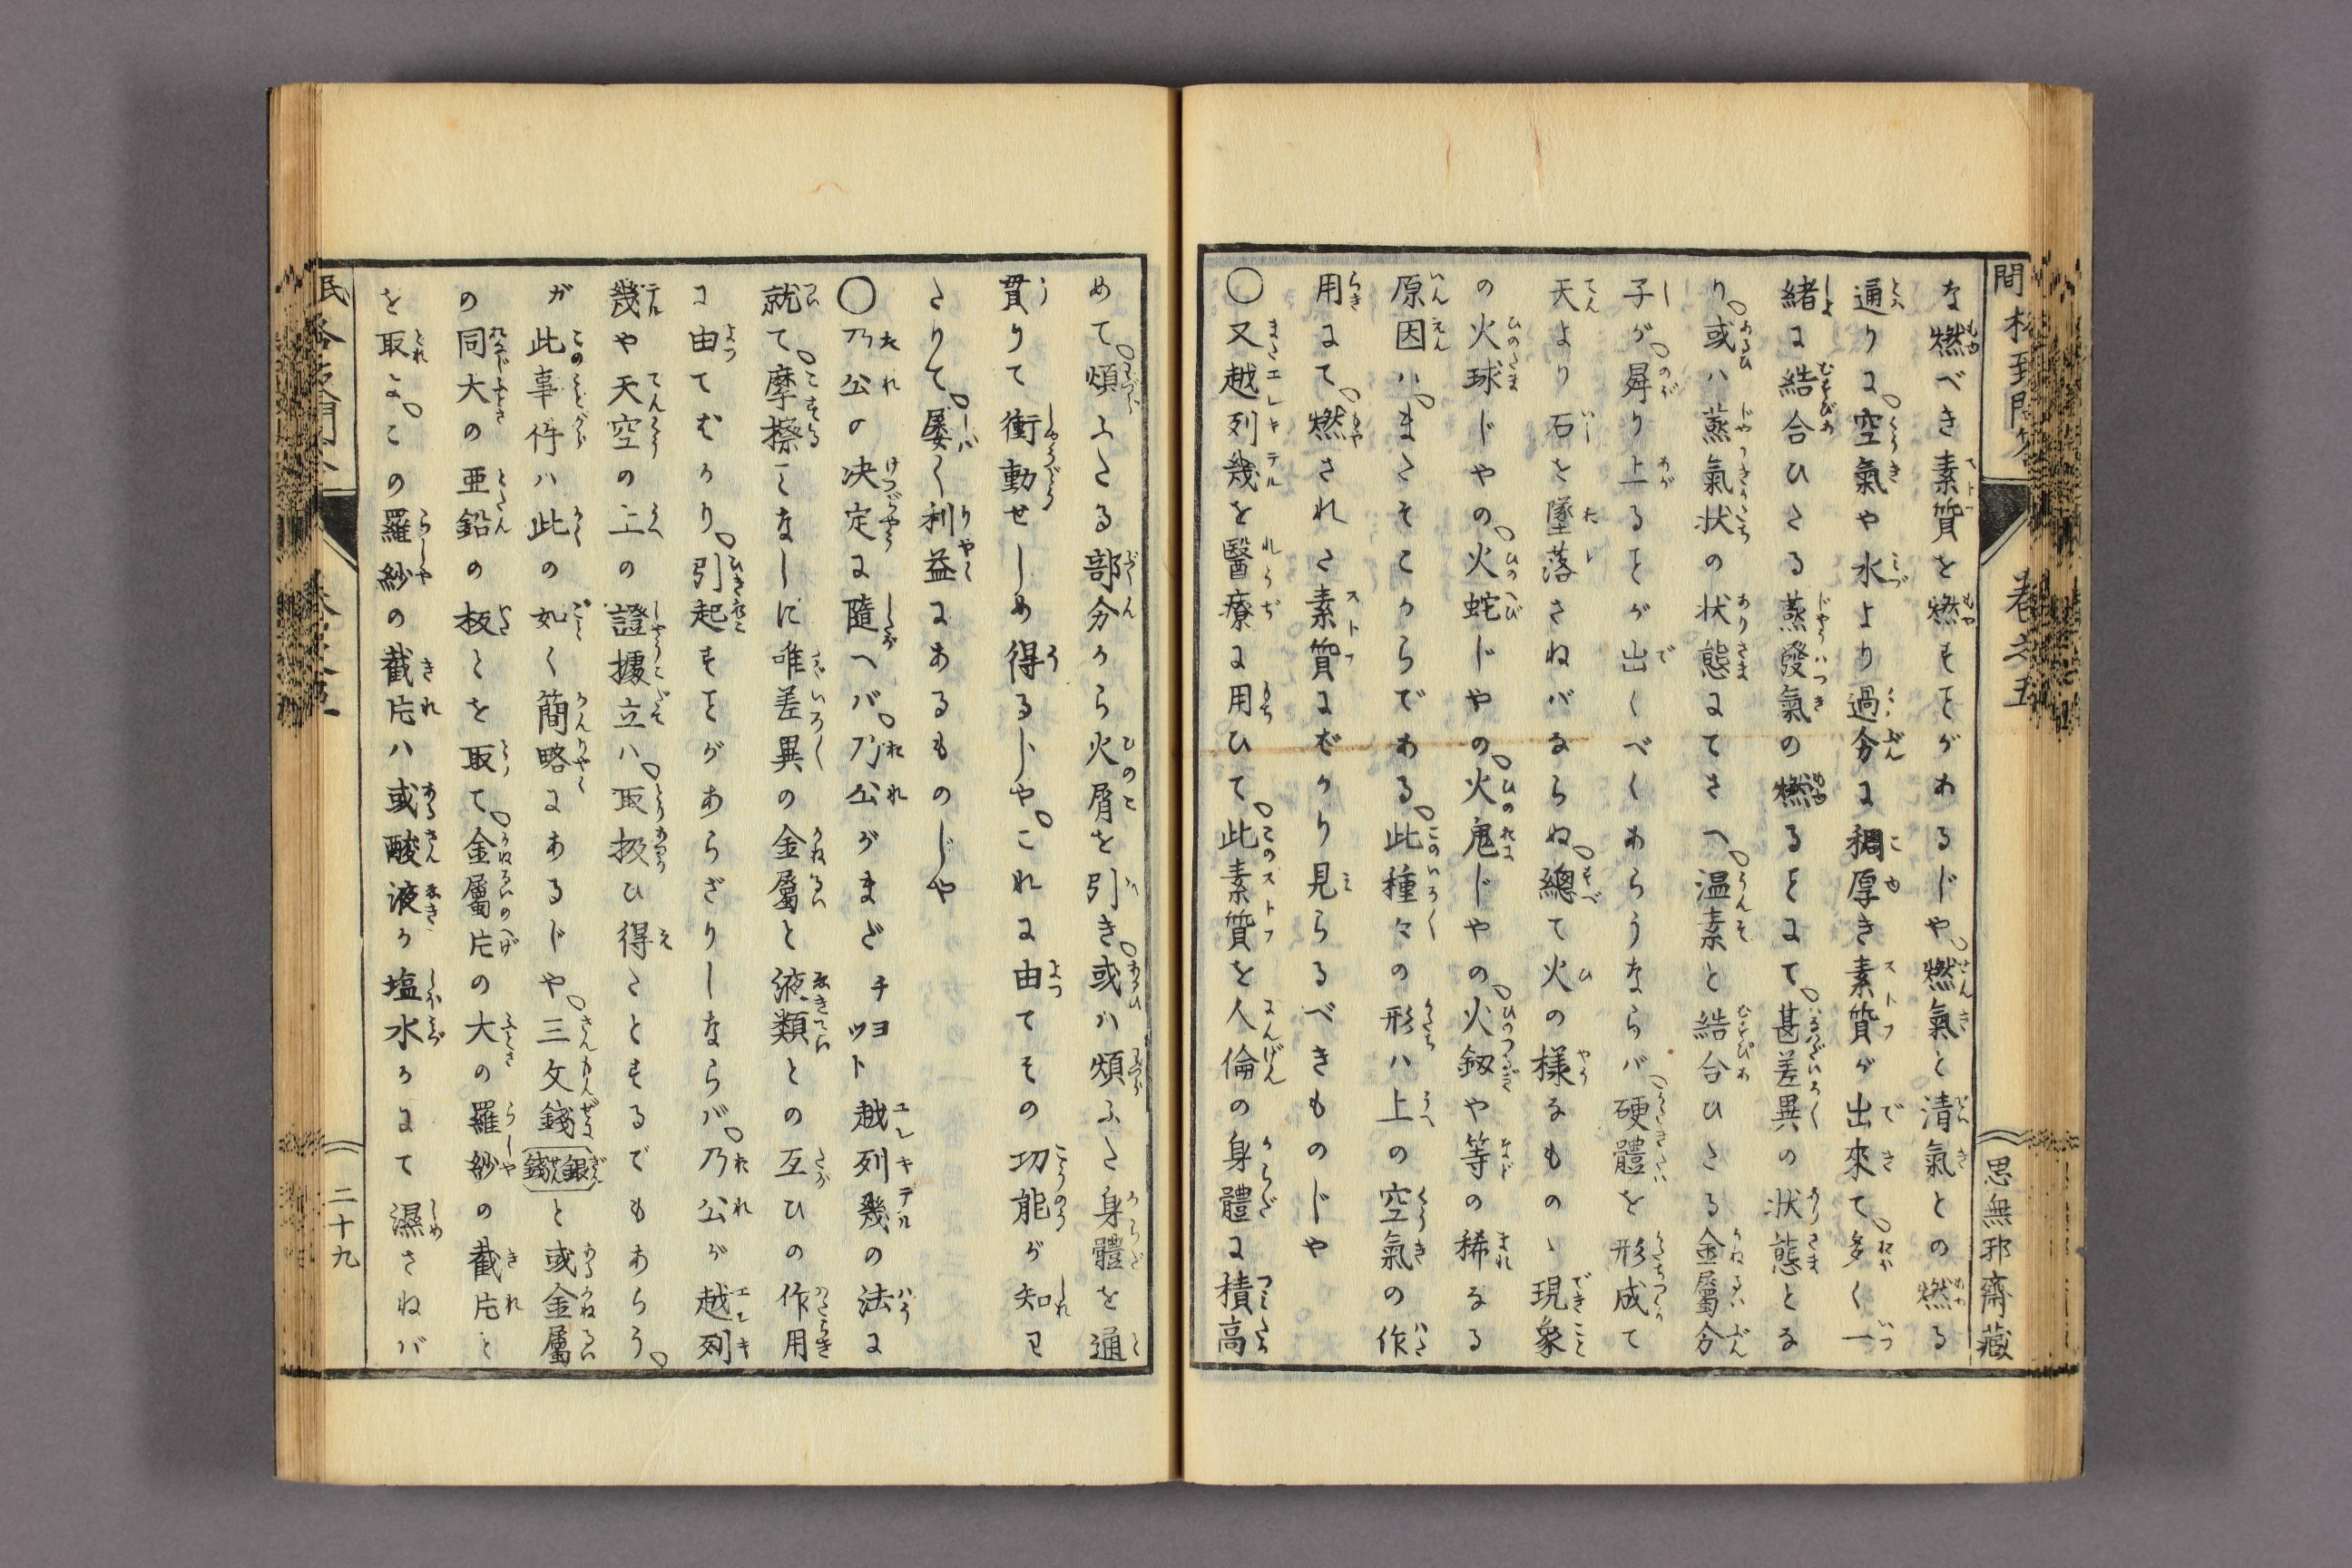 な燃べき素質を燃すことがあるじや。燃氣と清氣との燃る
通りに。空氣や水より過分に稠厚き素質が出來て。多く一
緒に結合ひたる蒸發氣の燃ることにて。甚差異の状態とな
り。或ハ蒸氣状の状態にてさへ。温素と結合ひたる金屬分
子が。昇り上ることが出くべくあらうならバ。硬體を形成て
天より石を墜落さねバならぬ。總て火の様なものゝ現象
の火球じやの。火蛇じやの。火鬼じやの。火釼や等の稀なる
原因ハ。またそこからである。此種々の形ハ上の空氣の作
用にて。燃された素質にばかり見らるべきものじや
〇又越列幾を醫療に用ひて。此素質を人倫の身體に積高
思無邪齋藏
めて。煩ふたる部分から火屑を引き。或ハ煩ふた身體を通
貫りて衝動せしめ得るじや。これに由てその功能が知ワ
たりて。屡〱利益にあるものじや
〇乃公の决定に隨へバ。乃公がまだチヨツト越列幾の法に
就て。摩擦ことなしに唯差異の金屬と液類との互ひの作用
に由てむかり。引起すことがあらざりしならバ。乃公が越列
幾や天空の上の證據立ハ。取扱ひ得たとするでもあらう。
が此事件ハ此の如く簡略にあるじや。三文錢銀錢と或金屬
の同大の亜鉛の板とを取て。金屬片の大の羅紗の截片と
を取よ。この羅紗の截片ハ或酸液か塩水かにて濕さねバ
二十九